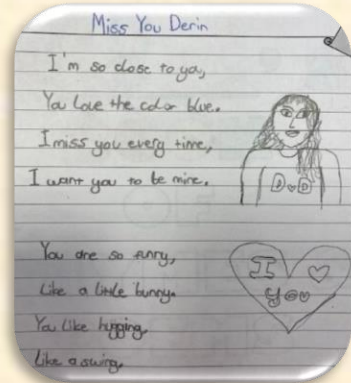 Miss You Derin
I'm so close to ya,
You love the color blue.
I miss you every time,
I want you to be mine.
D♥D
You are so funny,
Like a little bunny.
You like hugging,
Like a swing.
I ♡
you